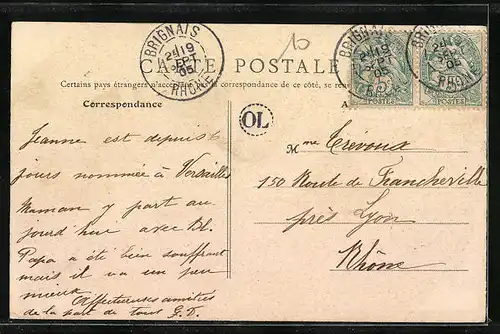 BRIGNAIS
2H 19
SEPT
05
RHONE
10
BRIGNAIS
2H 19
SEPT
05
RHONE
BRIGNAIS
2H 19
SEPT
05
RHONE
POSTES
POSTES
CARTE POSTALE
Certains pays étrangers n'acceptent pas la correspondance de ce côté, se rens
Correspondance
A
OL
Jeanne est depuis
jours nommée à Versailles
Maman y part au
jourd'hui avec Bl.
Papa a été bien souffrant
mais il va un peu
mieux
Affectueuses amitiés
de la part de tous G.D.
Mme Trévoux
150 Route de Francheville
près Lyon
Rhône